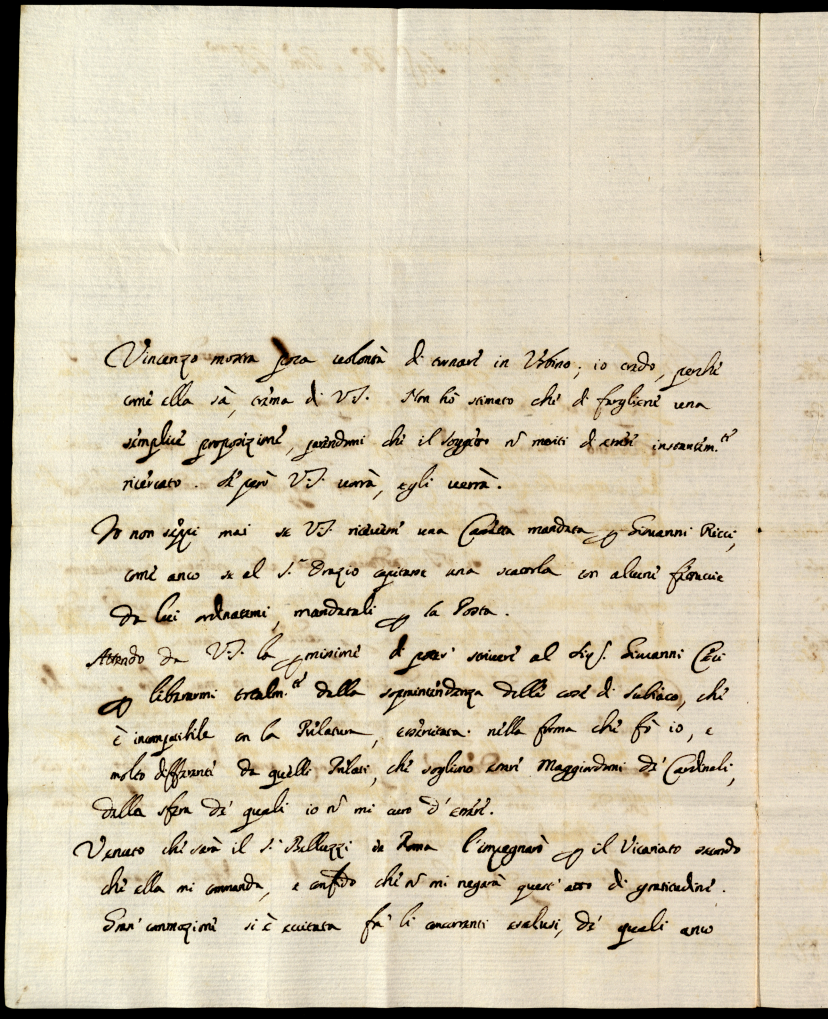 Vincenzo mostra poca volontà di tornare in Urbino; io credo, perche
come ella sà, tema di V.S. Non hò stimato che di fargliene una
semplice proposizione, parendomi che il soggetto nõ meriti di essere instantem.te
ricercato. Se però V.S. vorrà, egli verrà.
Io non seppi mai se V.S. ricevesse una Cassetta mandata p Giovanni Ricci,
come anco se al S.r Orazio capitasse una scatola con alcune
da lui ordinatemi, mandatali p la Posta.
Attendo da V.S. la pmissione di poter scrivere al Sig.r Giovanni
p liberarmi totalm.te dalla soprintendenza delle cose di Subiaco, che
è incompatibile con la Prelatura, esercitata nella forma che fò io, e
molto differente da quelli Prelati, che sogliono essere Maggiordomi de' Cardinali,
dalla sfera de' quali io nõ mi curo d' essere.
Venuto che sarà il S.r Belluzzi in Roma l'impegnarò p il Vicariato secondo
che ella mi comanda, e confido che nõ mi negarà quest' atto di gratitudine.
Gran' commozione si è eccitata frà li concorrenti esclusi, de' quali anco